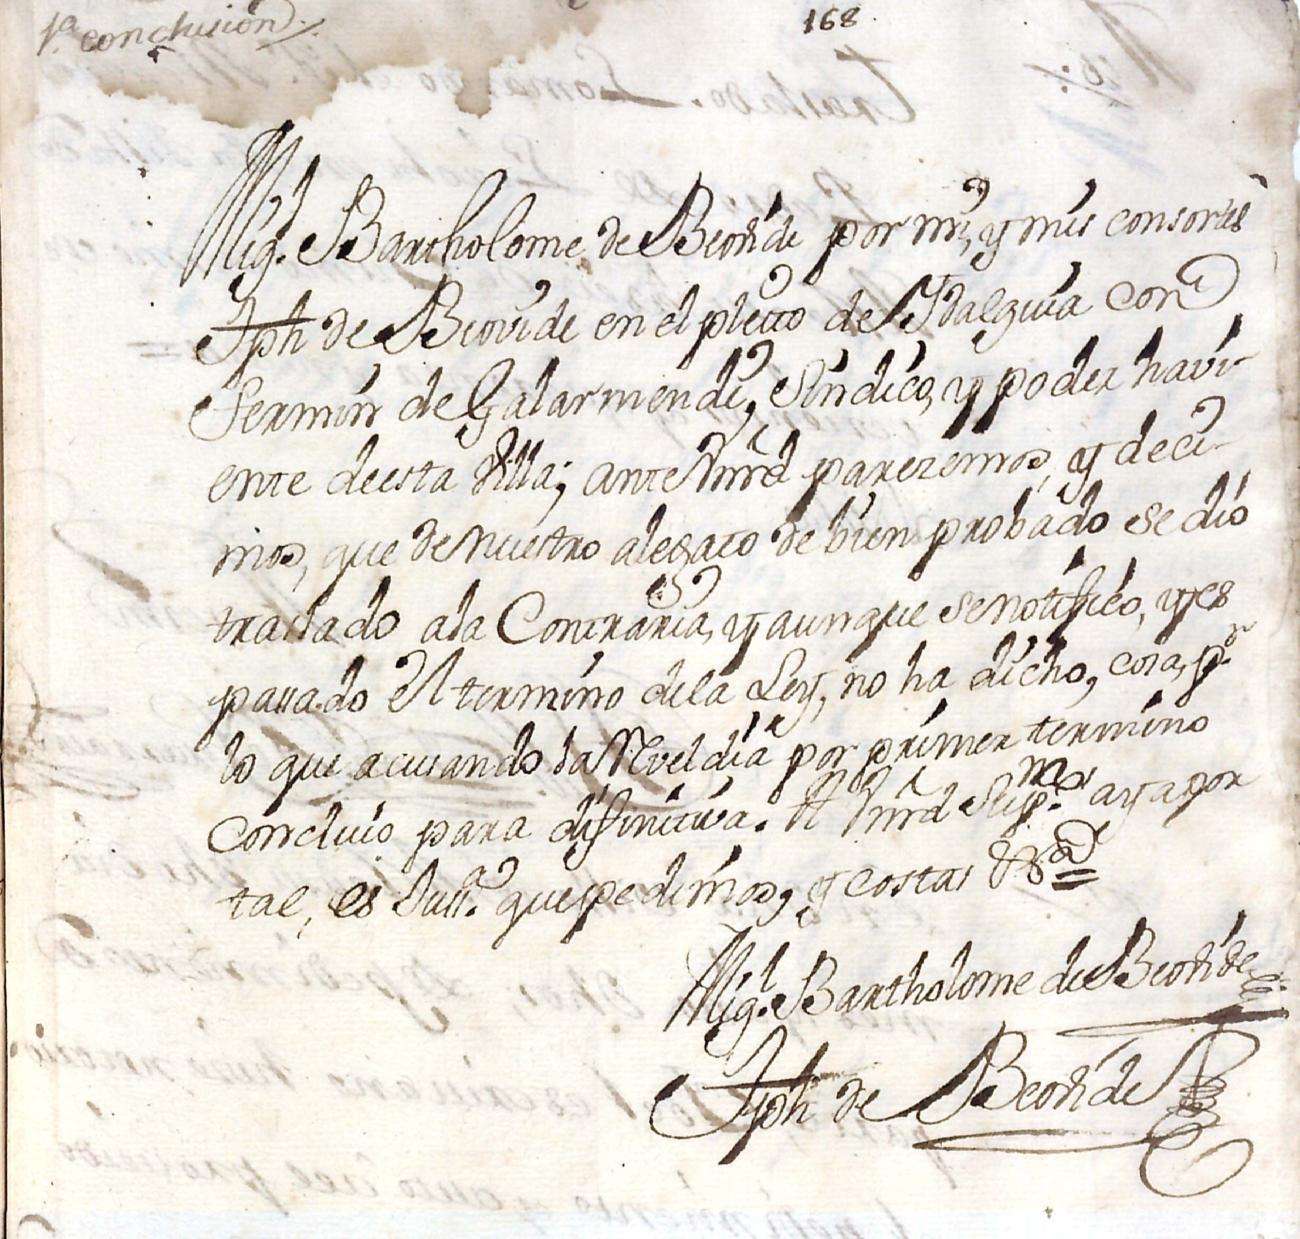 1.ª conclusion
168
Mig.l Bartholome de Beovide por mi, y mis consortes
Jph de Beovide en el pleito de Hidalguia con
Fermin de Galarmendi, Sindico, y poder havi-
ente deesta Villa; ante Vmrd parezemos, y deci-
mos, que de nuestro alegato de bien probado se dio
traslado ala Contraria, y aunque senotifico, y es
passado el termino dela Ley, no ha dicho, cosa, p.r
lo que acusando la Rveldia por primer termino
concluio para difinitiva. A Vmrd Supp.mos aya por
tal, es Just.a que pedimos, y costas &.a
Mig.l Bartholome de Beovide
Jph de Beovide